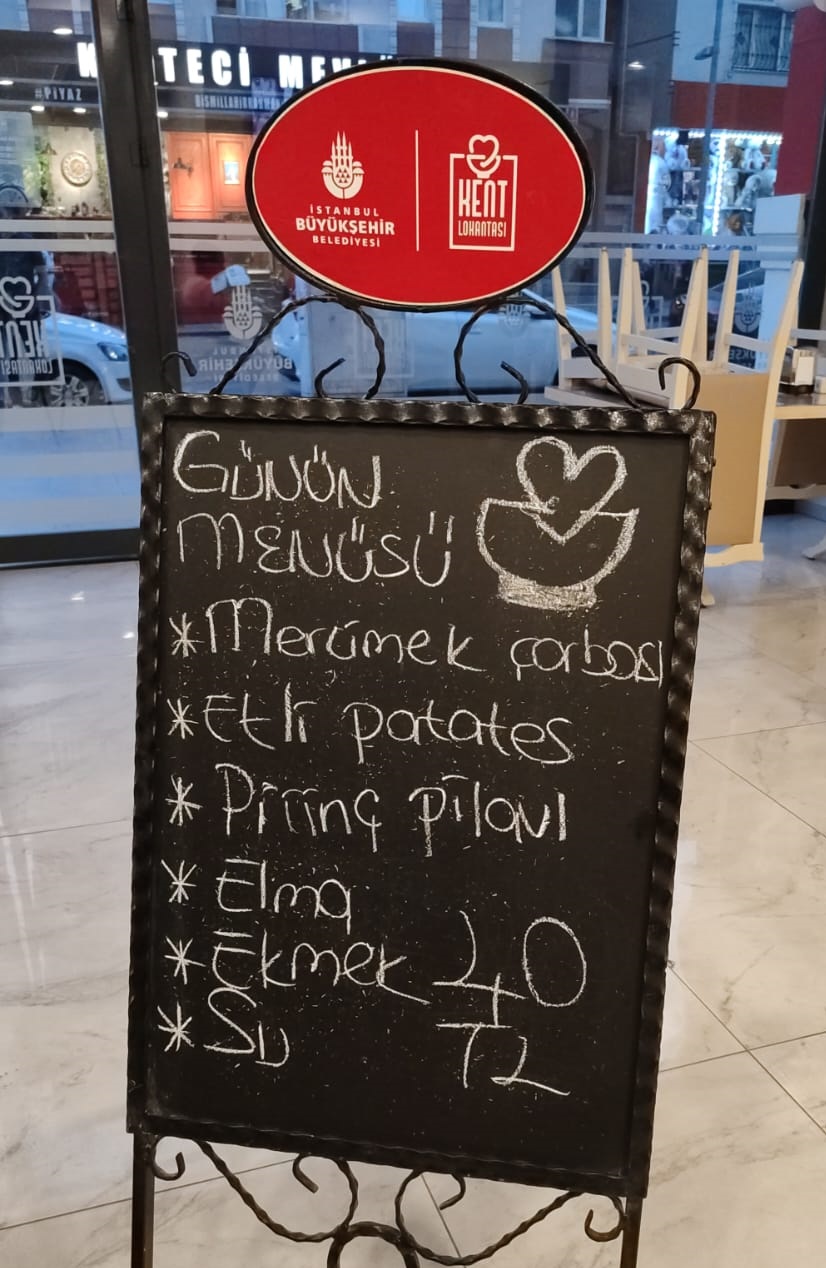 İSTANBUL
BÜYÜKŞEHİR
BELEDİYESİ
KENT
LOKANTASI
GÜNÜN
MENÜSÜ
* Mercimek çorbası
* Etli patates
* Pirinç pilavı
* Elma
* Ekmek
* Su
40
TL